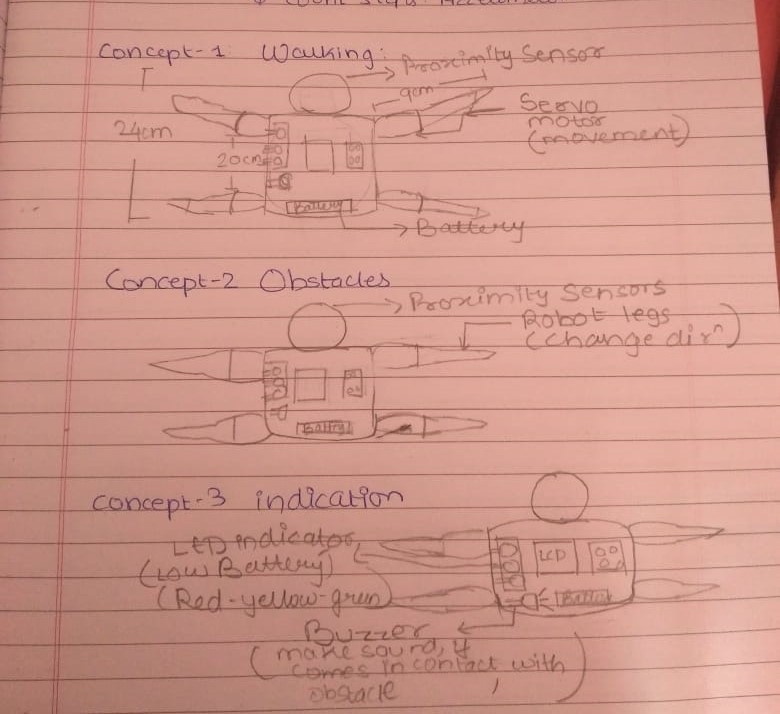 Concept-1 Walking:
Proximity Sensor
9cm
24cm
20cm
Servo
motor
(movement)
Battery
Battery
Concept-2 Obstacles
Proximity Sensors
Robot legs
(change dirⁿ)
Battery
Concept-3 indication
LED indicator
(Low Battery)
(Red-yellow-grun)
LCD
Buzzer
(make sound, if
comes in contact with
obstacle)